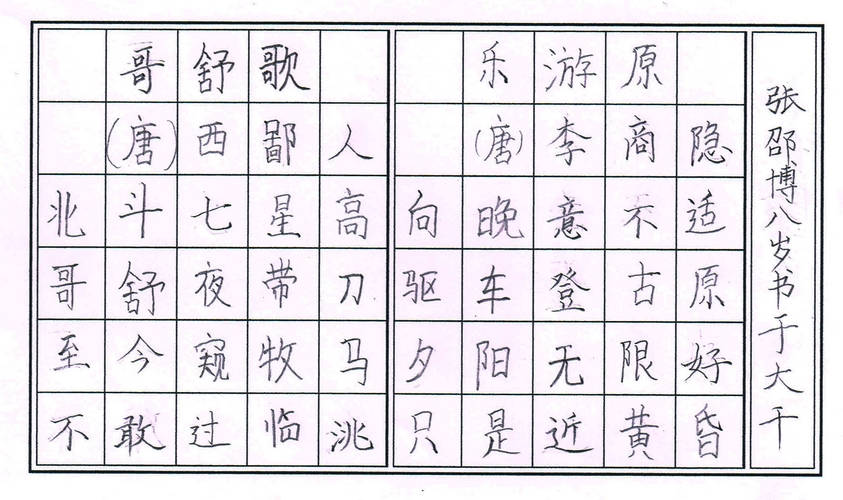 哥舒歌
(唐)西鄙人
北斗七星高
哥舒夜带刀
至今窥牧马
不敢过临洮
乐游原
(唐)李商隐
向晚意不适
驱车登古原
夕阳无限好
只是近黄昏
张邵博八岁书于大千